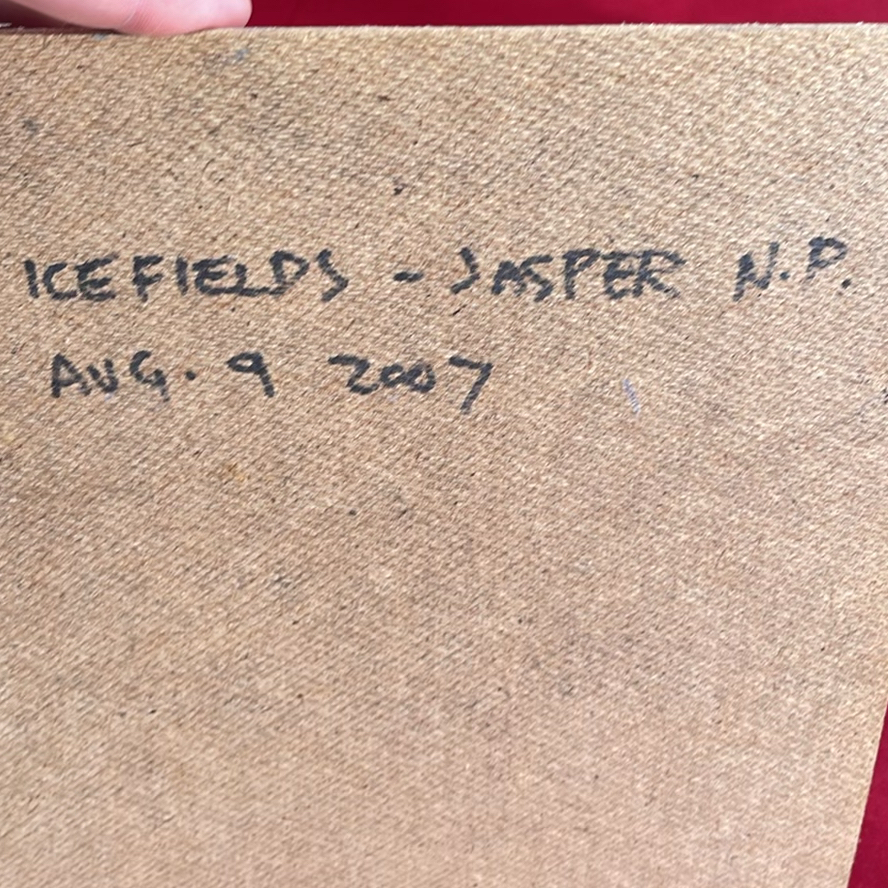 ICEFIELDS - JASPER N.P.
AUG. 9 2007